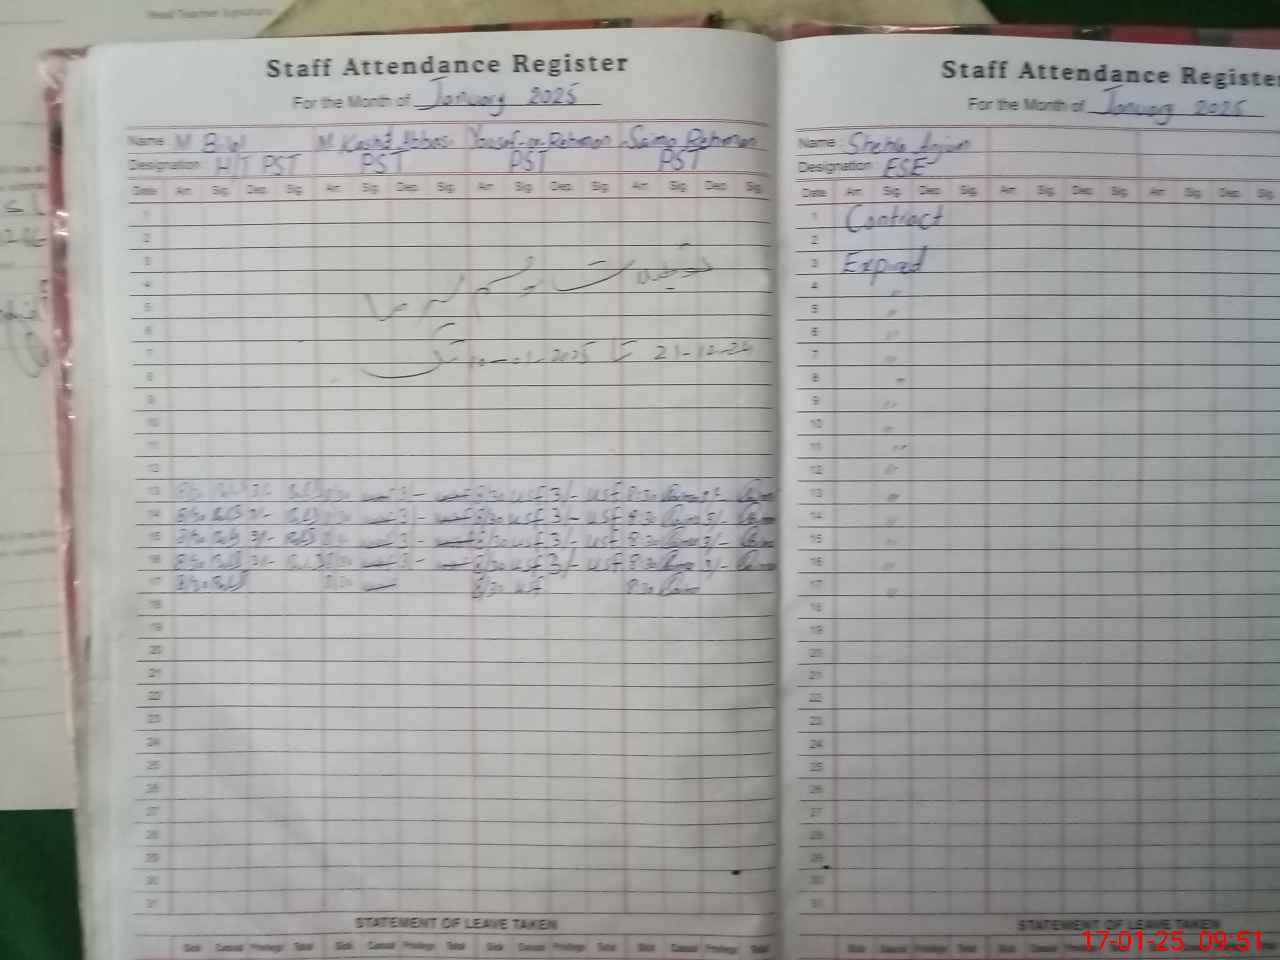 Head Teacher Signature
Staff Attendance Register
For the Month of January 2025
Name M Bilal M Kashif Abbas Yousaf-ur-Rehman Saima Rehman
Designation H/T PST PST PST PST
Date Arr. Sig. Dep. Sig. Arr. Sig. Dep. Sig. Arr. Sig. Dep. Sig. Arr. Sig. Dep. Sig.
1
2
3
4
تعطیلات موسم سرما
5
6
7
21-12-24 تا 10-01-2025 تک
8
9
10
11
12
13 8/30 3/- 8/30 3/- 8/30 usf 3/- usf 8:30 3/-
14 8/30 3/- 8/30 3/- 8/30 usf 3/- usf 8:30 3/-
15 8/30 3/- 3/- 8/30 usf 3/- usf 8:30 3/-
16 8/30 3/- 8/30 3/- 8/30 usf 3/- usf 8:30 3/-
17 8/30 8/30 8/30 usf 8:30
18
19
20
21
22
23
24
25
26
27
28
29
30
31
STATEMENT OF LEAVE TAKEN
Sick Casual Privilege Total Sick Casual Privilege Total Sick Casual Privilege Total Sick Casual Privilege Total
Staff Attendance Register
For the Month of January 2025
Name Shehla Anjum
Designation ESE
Date Arr. Sig. Dep. Sig. Arr. Sig. Dep. Sig. Arr. Sig. Dep. Sig.
1 Contract
2
3 Expired
4 〃
5 〃
6 〃
7 〃
8 〃
9 〃
10 〃
11 〃
12 〃
13 〃
14 〃
15 〃
16 〃
17 〃
18
19
20
21
22
23
24
25
26
27
28
29
30
31
STATEMENT OF LEAVE TAKEN
Sick Casual Privilege Total Sick Casual Privilege
17-01-25 09:51